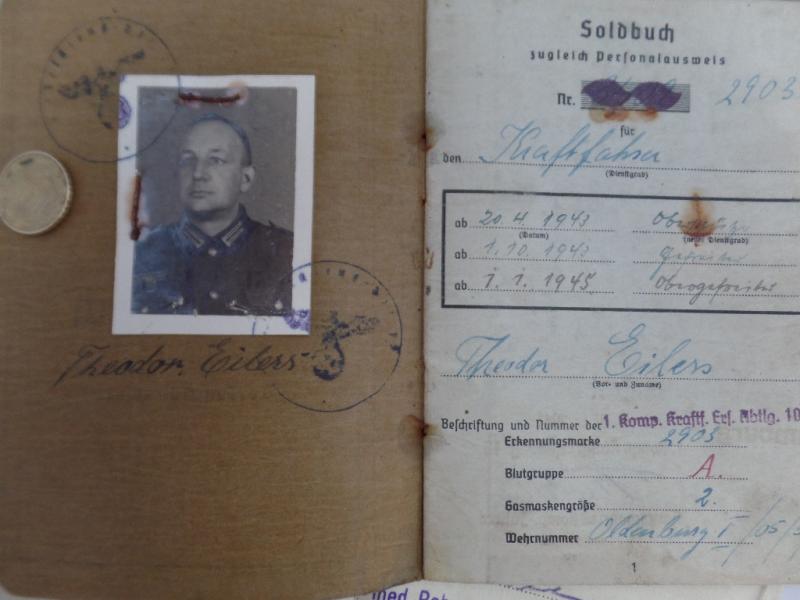 Theodor Eilers
Soldbuch
zugleich Personalausweis
Nr. 2903
für
den Kraftfahrer
(Dienstgrad)
ab 20.4.1943
(Datum) (neuer Dienstgrad)
ab 1.10.1943 Gefreiter
ab 1.1.1945 Obergefreiter
Theodor Eilers
(Vor- und Zuname)
Beschriftung und Nummer der 1. Komp. Kraftf. Ers. Abtlg. 10
Erkennungsmarke 2903
Blutgruppe A.
Gasmaskengröße 2.
Wehrnummer Oldenburg I /05/
1
med.